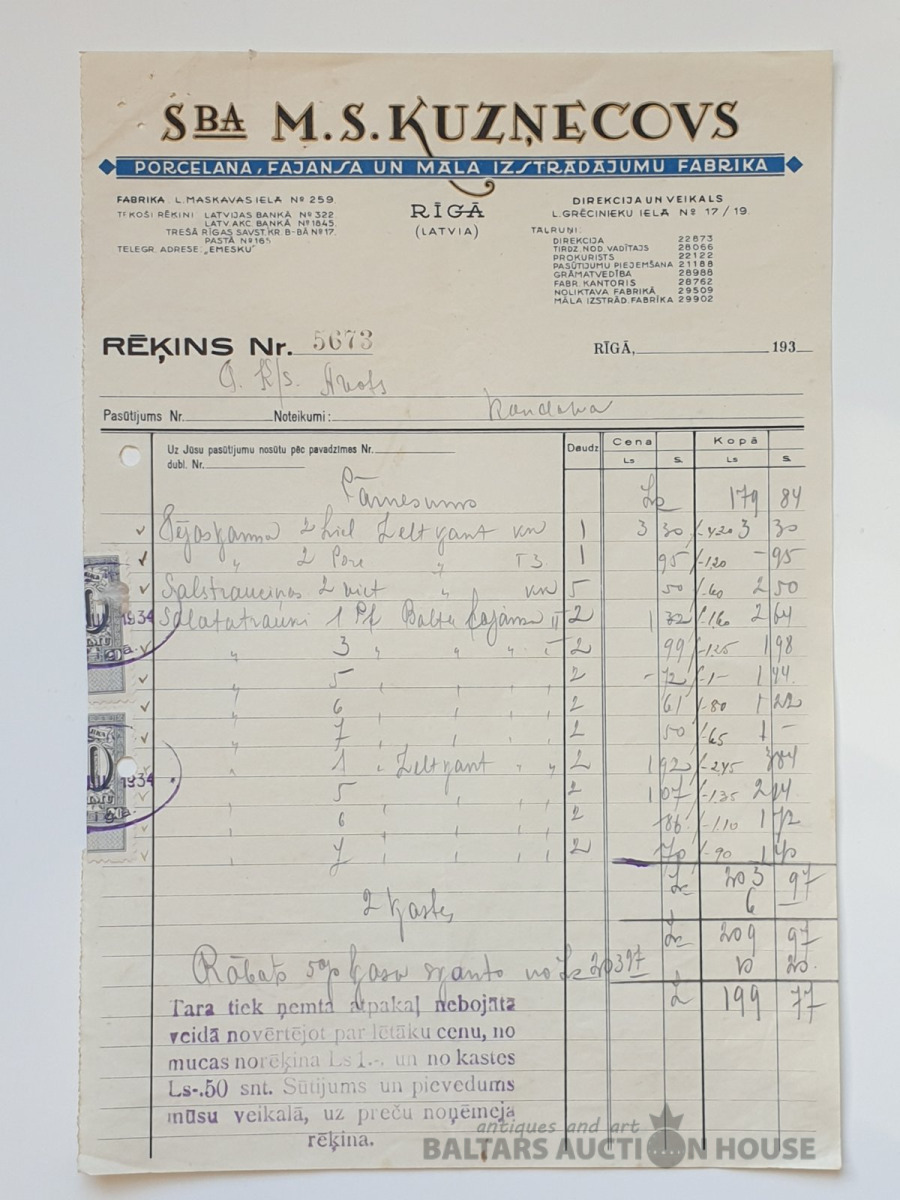 SBA M.S.KUZŅECOVS
PORCELANA, FAJANSA UN MĀLA IZSTRĀDĀJUMU FABRIKA
FABRIKA L. MASKAVAS IELĀ Nº 259.
TEKOŠI RĒĶINI LATVIJAS BANKĀ Nº 322.
LATV. AKC. BANKĀ Nº 1845.
TREŠĀ RĪGAS SAVST. KR. B-BĀ Nº 17.
PASTĀ Nº 165
TELEGR. ADRESE: „EMESKU"
RĪGĀ
(LATVIA)
DIREKCIJA UN VEIKALS
L. GRĒCINIEKU IELĀ Nº 17/19.
TĀLRUŅI:
DIREKCIJA 22873
TIRDZ. NOD. VADĪTAJS 28066
PROKURISTS 22122
PASŪTIJUMU PIEJEMŠANA 21188
GRĀMATVEDĪBA 28988
FABR. KANTORIS 28762
NOLIKTAVA FABRIKĀ 29509
MĀLA IZSTRĀD. FABRIKA 29902
RĒĶINS Nr. 5673
RĪGĀ, 193
K/s. Avots
Pasūtījums Nr. Noteikumi: Kandava
Uz Jūsu pasūtījumu nosūtu pēc pavadzīmes Nr.
dubl. Nr.
Daudz Cena Kopā
Ls S. Ls S.
Pārnesums Ls 179 84
1 3 30 3 30
2 1 95 - 95
5 50 2 50
Salatatrauki 1 Baltu fajansa II 2 1 32 2 64
3 " " " 2 99 1 98
" 5 2 - 72 1 44
" 6 2 61 1 22
" 7 2 50 1 -
" 1 2 1 92 3 84
" 5 2 1 07 2 14
" 6 2 86 1 72
" 7 2 70 1 40
1934
1934
Ls 203 97
2 kastes 6 -
Ls 209 97
Rābats 5% no Ls 203 97 10 20
199 77
Tara tiek ņemta atpakaļ nebojātā
veidā novērtējot par lētāku cenu, no
mucas norēķina Ls 1.-, un no kastes
Ls-.50 snt. Sūtijums un pievedums
mūsu veikalā, uz preču noņēmeja
rēķina.
antiques and art
BALTARS AUCTION HOUSE